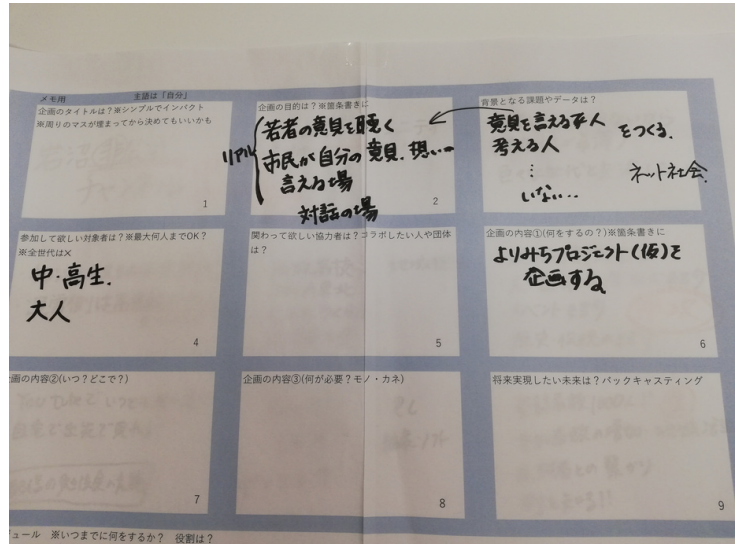 メモ用 主語は「自分」
企画のタイトルは?※シンプルでインパクト
※周りのマスが埋まってから決めてもいいかも
1
企画の目的は?※箇条書きに
若者の意見を聴く
リアル
市民が自分の意見、想いの
言える場
対話の場
2
背景となる課題やデータは?
意見を言える人
をつくる.
考える人
⋮
いない…
ネット社会.
参加して欲しい対象者は?※最大何人までOK?
※全世代は×
中・高生.
大人
4
関わって欲しい協力者は?コラボしたい人や団体
は?
5
企画の内容①(何をするの?)※箇条書きに
よりみちプロジェクト(仮)を
企画する
6
画の内容②(いつ?どこで?)
7
企画の内容③(何が必要?モノ・カネ)
8
将来実現したい未来は?バックキャスティング
9
ュール ※いつまでに何をするか? 役割は?